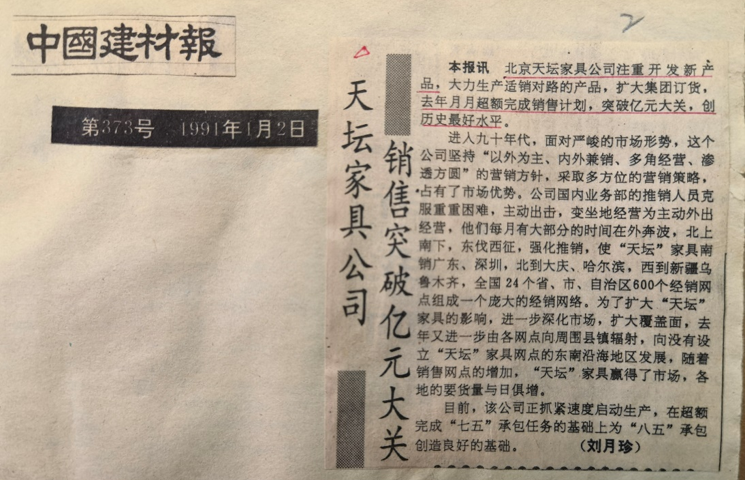 中國建材報
第373号 1991年1月2日
2
天坛家具公司
销售突破亿元大关
本报讯 北京天坛家具公司注重开发新产
品,大力生产适销对路的产品,扩大集团订货,
去年月月超额完成销售计划,突破亿元大关,创
历史最好水平。
进人九十年代,面对严峻的市场形势,这个
公司坚持“以外为主、内外兼销、多角经营、渗
透方圆”的营销方针,采取多方位的营销策略,
占有了市场优势。公司国内业务部的推销人员克
服重重困难,主动出击,变坐地经营为主动外出
经营,他们每月有大部分的时间在外奔波,北上
南下,东伐西征,强化推销,使“天坛”家具南
销广东、深圳,北到大庆、哈尔滨,西到新疆乌
鲁木齐,全国24个省、市、自治区600个经销网
点组成一个庞大的经销网络。为了扩大“天坛”
家具的影响,进一步深化市场,扩大覆盖面,去
年又进一步由各网点向周围县镇辐射,向没有设
立“天坛”家具网点的东南沿海地区发展,随着
销售网点的增加,“天坛”家具赢得了市场,各
地的要货量与日俱增。
目前,该公司正抓紧速度启动生产,在超额
完成“七五”承包任务的基础上为“八五”承包
创造良好的基础。 (刘月珍)